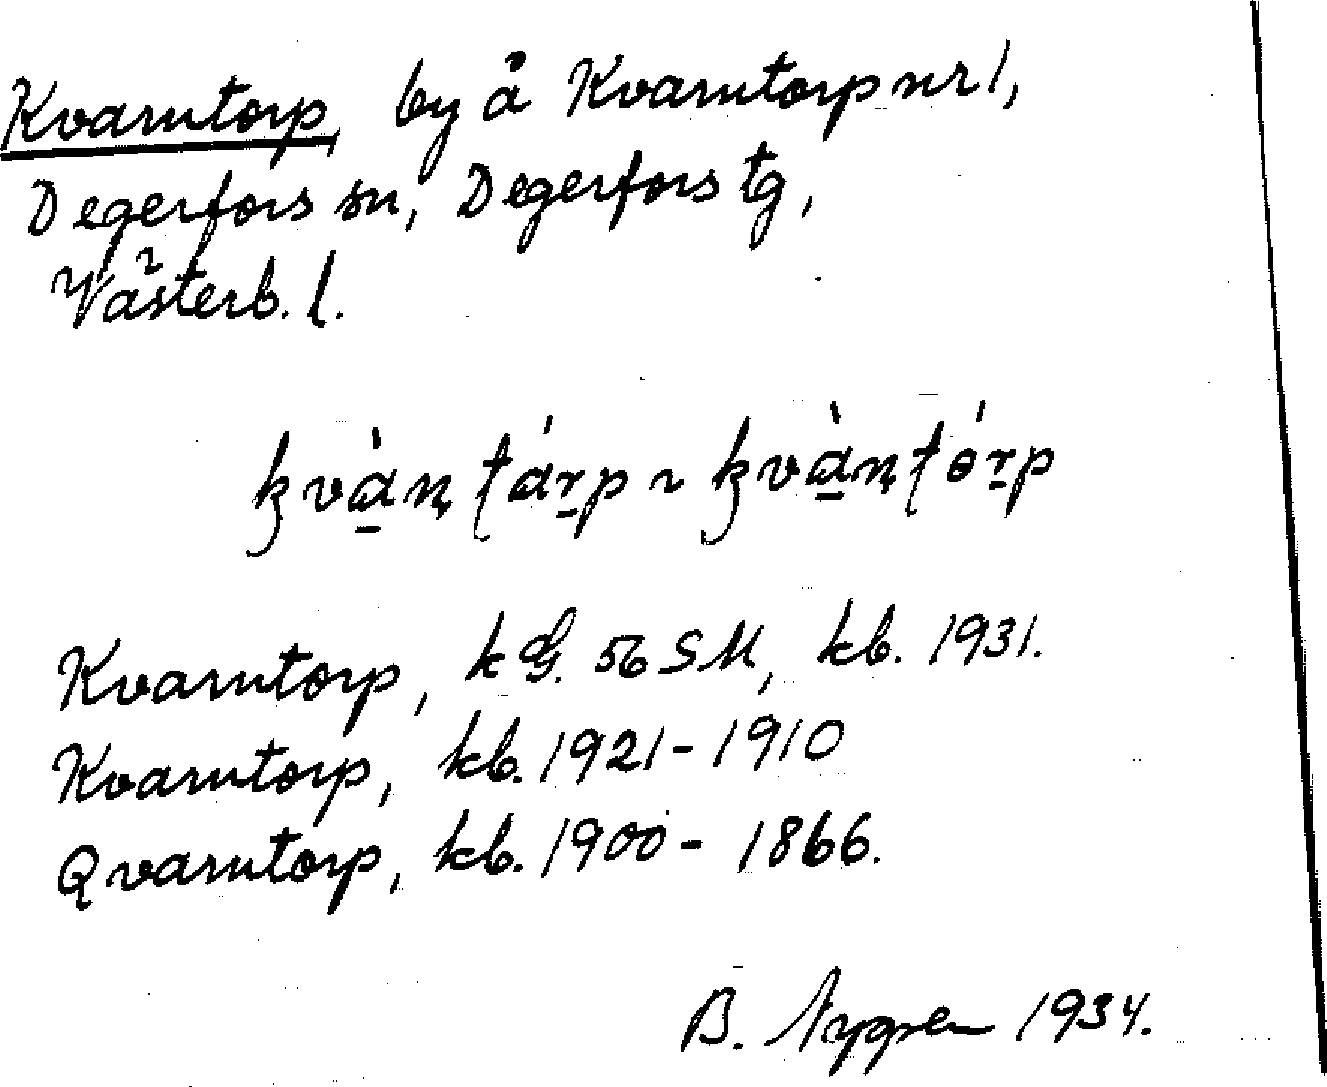 Kvarntorp, by å Kvarntorp nr 1,
Degerfors sn, Degerfors tg,
Västerb. l.
kvàṇtárp ~ kvàṇtórp
Kvarntorp, k G. 56 SM, kb. 1931.
Kvarntorp, kb. 1921-1910
Qvarntorp, kb. 1900-1866.
B. Nygren 1934.